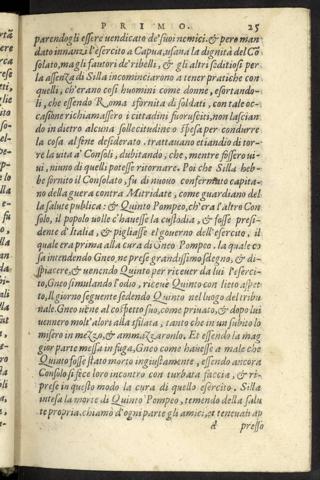 PRIMO. 25
parendogli essere uendicato de' suoi nemici. & pero man
dato innanzi l'esercito a Capua, usana la dignità del Co
solato, ma gli fautori de' ribelli, & gli altri seditiosi per
la assenza di Silla incominciarono a tener pratiche con
quelli, ch'erano cosi huomini come donne, esortando-
li, che essendo Roma sfornita di soldati, con tale oc-
casione richiamassero i cittadini fuorusciti, non lascian
do in dietro alcuna sollecitudine o spesa per condurre
la cosa al fine desiderato. trattauano etiandio di tor-
re la uita a' Consoli, dubitando, che, mentre fossero ui-
ui, niuno di quelli potesse ritornare. Poi che Silla heb-
be fornito il Consolato, fu di nuouo confermato capita-
no della guerra contra Mitridate, come guardiano del
la salute publica: & Quinto Pompeo, ch'era l'altro Con
solo, il popolo uolle c'hauesse la custodia, & fosse presi-
dente d'Italia, & pigliasse el gouerno dell'esercito, il
quale era prima alla cura di Gneo Pompeo. la quale co
sa intendendo Gneo, ne prese grandissimo sdegno, & di-
spiacere, & uenendo Quinto per riceuer da lui l'eserci-
to, Gneo simulando l'odio, riceuè Quinto con lieto aspet
to, Il giorno seguente sedendo Quinto nel luogo del tribu
nale, Gneo uẽne al cospetto suo, come priuato, & dopo lui
uennero molt'altri alla sfilata, tanto che in un subito lo
misero in mezzo, & ammazzaronlo. Et essendo la mag
gior parte messa in fuga, Gneo come hauesse a male che
Quinto fosse stato morto ingiustamente, essendo ancora
Consolo si fece loro incontro con turbata faccia, & ri-
prese in questo modo la cura di quello esercito. Silla
intesa la morte di Quinto Pompeo, temendo della salu
te propria, chiamò d'ogni parte gli amici, et teneuati ap
d presso